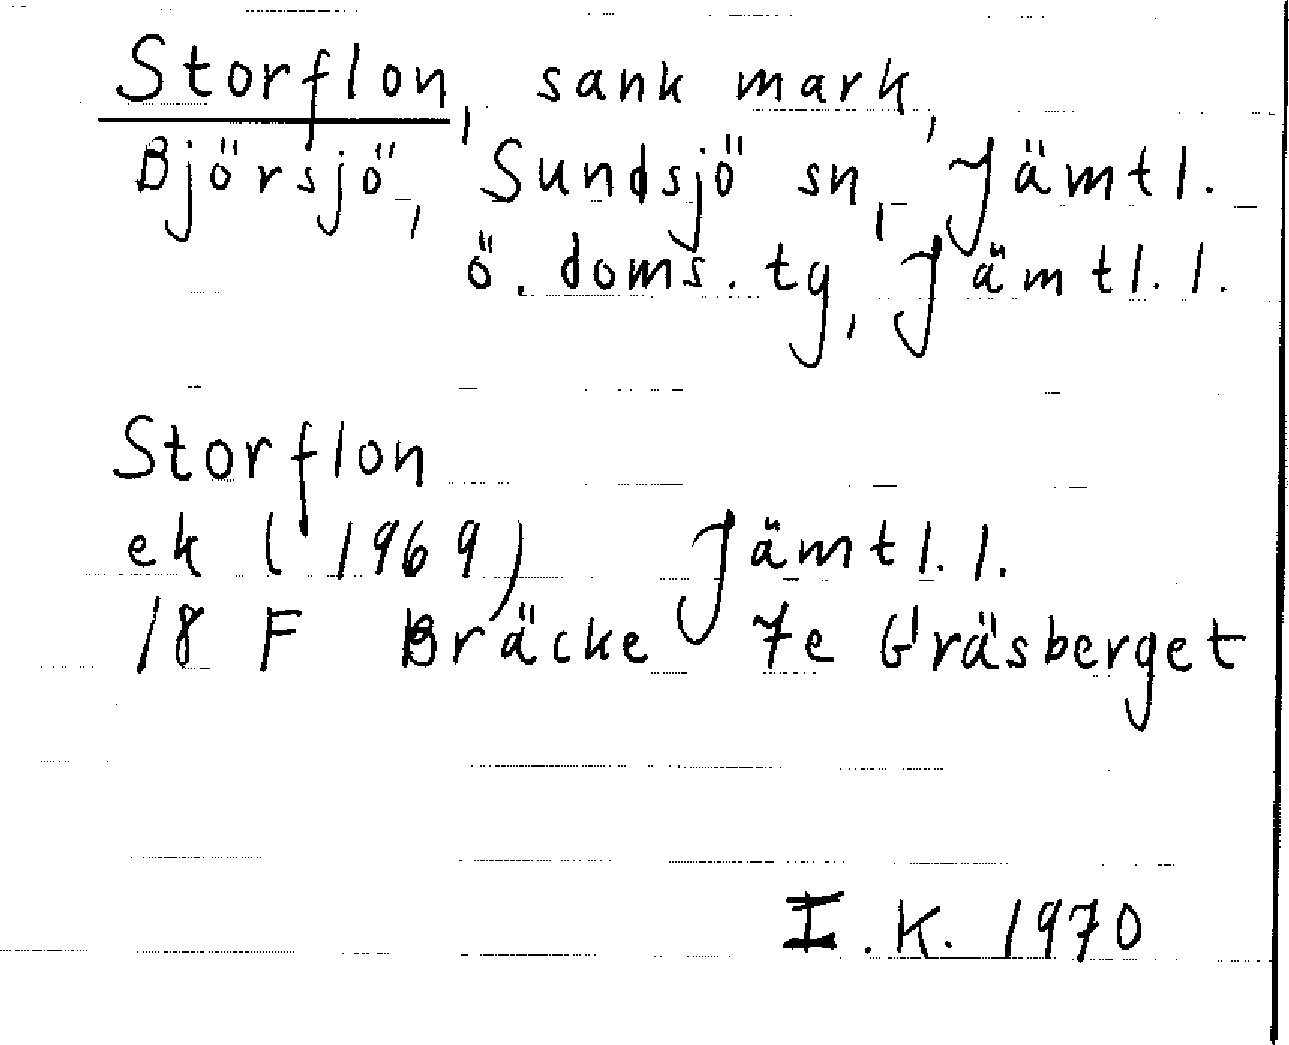 Storflon, sank mark,
Björsjö, Sundsjö sn, Jämtl.
ö. doms. tg, Jämtl. l.
Storflon
ek (1969) Jämtl. l.
18 F Bräcke 7e Gräsberget
I. K. 1970